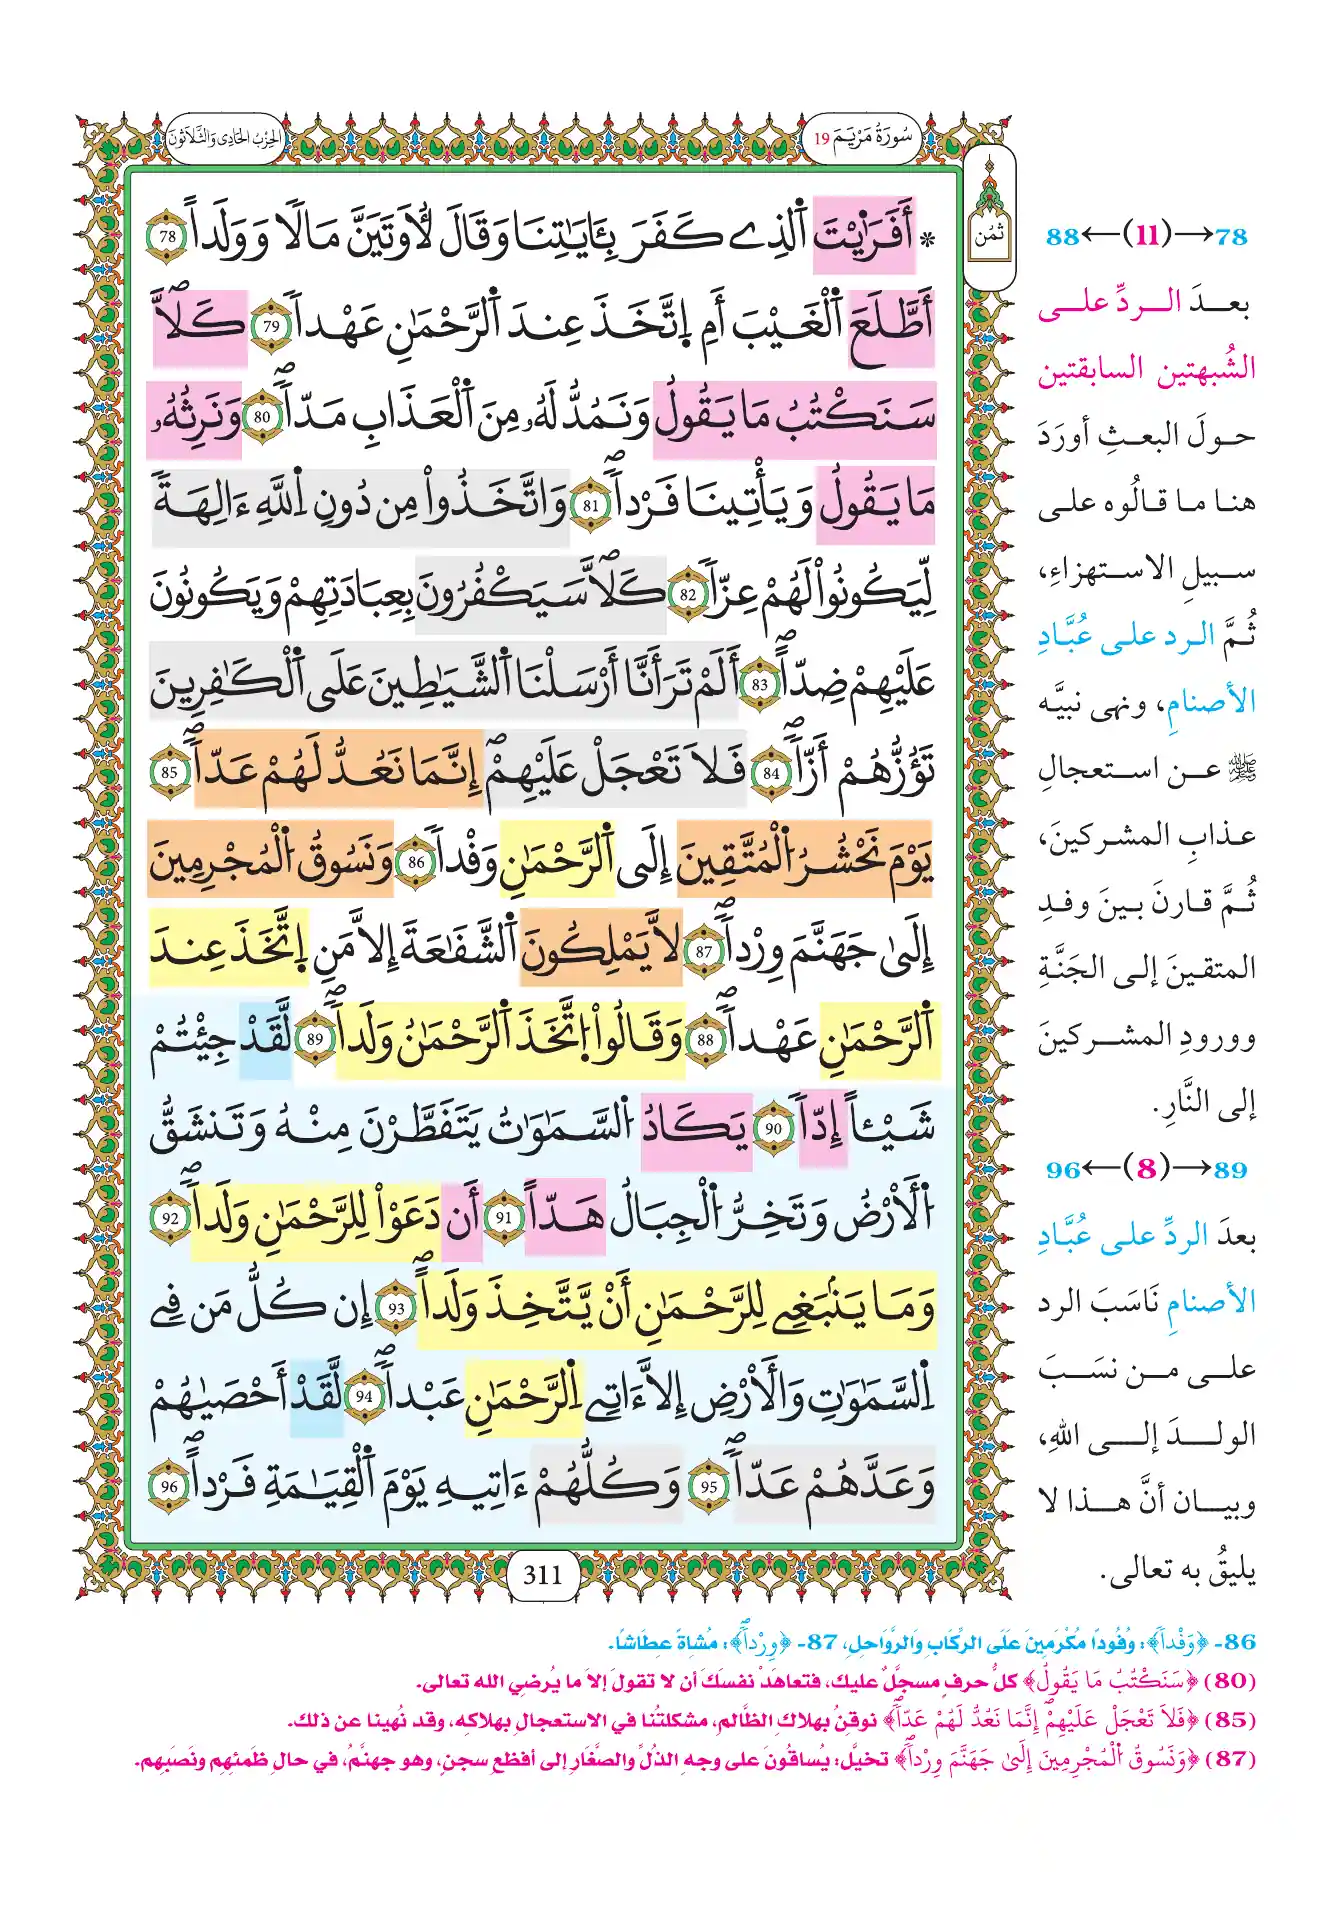 سُورَةُ مَرْيَمَ 19
الحِزْبُ الحَادِي وَالثَّلَاثُونَ
ثُمُن
* أَفَرَٰيْتَ اَ۬لذِے كَفَرَ بِـَٔايَٰتِنَا وَقَالَ لَأُوتَيَنَّ مَالاٗ وَوَلَداًۖ 78
أَطَّلَعَ اَ۬لْغَيْبَ أَمِ اِ۪تَّخَذَ عِندَ اَ۬لرَّحْمَٰنِ عَهْداٗ 79 كَلَّاۖ
سَنَكْتُبُ مَا يَقُولُ وَنَمُدُّ لَهُۥ مِنَ اَ۬لْعَذَابِ مَدّاٗۖ 80 وَنَرِثُهُۥ
مَا يَقُولُ وَيَأْتِينَا فَرْداٗۖ 81 وَاتَّخَذُواْ مِن دُونِ اِ۬للَّهِ ءَالِهَةٗ
لِّيَكُونُواْ لَهُمْ عِزّاٗ 82 كَلَّاۖ سَيَكْفُرُونَ بِعِبَادَتِهِمْ وَيَكُونُونَ
عَلَيْهِمْ ضِدّاًۖ 83 أَلَمْ تَرَ أَنَّا أَرْسَلْنَا اَ۬لشَّيَٰطِينَ عَلَى اَ۬لْكَٰفِرِينَ
تَؤُزُّهُمُۥ أَزّاٗۖ 84 فَلَا تَعْجَلْ عَلَيْهِمُۥۖ إِنَّمَا نَعُدُّ لَهُمْ عَدّاٗۖ 85
يَوْمَ نَحْشُرُ اُ۬لْمُتَّقِينَ إِلَى اَ۬لرَّحْمَٰنِ وَفْداٗ 86 وَنَسُوقُ اُ۬لْمُجْرِمِينَ
إِلَىٰ جَهَنَّمَ وِرْداٗۖ 87 لَّا يَمْلِكُونَ اَ۬لشَّفَٰعَةَ إِلَّا مَنِ اِ۪تَّخَذَ عِندَ
اَ۬لرَّحْمَٰنِ عَهْداٗۖ 88 وَقَالُواْ اُ۪تَّخَذَ اَ۬لرَّحْمَٰنُ وَلَداٗۖ 89 لَّقَدْ جِئْتُمْ
شَيْـٔاً إِدّاٗ 90 يَكَادُ اُ۬لسَّمَٰوَٰتُ يَتَفَطَّرْنَ مِنْهُ وَتَنشَقُّ
اُ۬لْأَرْضُ وَتَخِرُّ اُ۬لْجِبَالُ هَدّاً 91 أَن دَعَوْاْ لِلرَّحْمَٰنِ وَلَداٗۖ 92
وَمَا يَنۢبَغِے لِلرَّحْمَٰنِ أَنْ يَّتَّخِذَ وَلَداًۖ 93 إِن كُلُّ مَن فِے
اِ۬لسَّمَٰوَٰتِ وَالْأَرْضِ إِلَّا ءَاتِے اِ۬لرَّحْمَٰنِ عَبْداٗۖ 94 لَّقَدْ أَحْصَيٰهُمْ
وَعَدَّهُمْ عَدّاٗۖ 95 وَكُلُّهُمُۥ ءَاتِيهِ يَوْمَ اَ۬لْقِيَٰمَةِ فَرْداًۖ 96
311
78→(11)←88
بعدَ الردِّ على
الشُبهتين السابقتين
حولَ البعثِ أورَدَ
هنا ما قالُوه على
سبيلِ الاستهزاءِ،
ثُمَّ الرد على عُبَّادِ
الأصنامِ، ونهى نبيَّه
ﷺ عن استعجالِ
عذابِ المشركينَ،
ثُمَّ قارنَ بينَ وفدِ
المتقينَ إلى الجَنَّةِ
وورودِ المشركينَ
إلى النَّارِ.
89→(8)←96
بعدَ الردِّ على عُبَّادِ
الأصنامِ نَاسَبَ الرد
على من نسَبَ
الولدَ إلى اللهِ،
وبيان أنَّ هذا لا
يليقُ به تعالى.
86- ﴿وَفْداٗ﴾: وُفُودًا مُكْرَمِينَ عَلَى الرِّكَابِ وَالرَّوَاحِلِ، 87- ﴿وِرْداٗۖ﴾: مُشَاةً عِطَاشًا.
(80) ﴿سَنَكْتُبُ مَا يَقُولُ﴾ كلُّ حرفٍ مسجَّلٌ عليك، فتعاهَدْ نفسَكَ أن لا تقولَ إلا ما يُرضِي الله تعالى.
(85) ﴿فَلَا تَعْجَلْ عَلَيْهِمُۥۖ إِنَّمَا نَعُدُّ لَهُمْ عَدّاٗۖ﴾ نوقنُ بهلاكِ الظَّالمِ، مشكلتُنا في الاستعجالِ بهلاكِه، وقد نُهينا عن ذلك.
(87) ﴿وَنَسُوقُ اُ۬لْمُجْرِمِينَ إِلَىٰ جَهَنَّمَ وِرْداٗۖ﴾ تخيَّل: يُساقُونَ على وجهِ الذُلِّ والصَّغَارِ إلى أفظعِ سجنٍ، وهو جهنَّمُ، في حالِ ظَمئِهِم ونَصَبِهم.